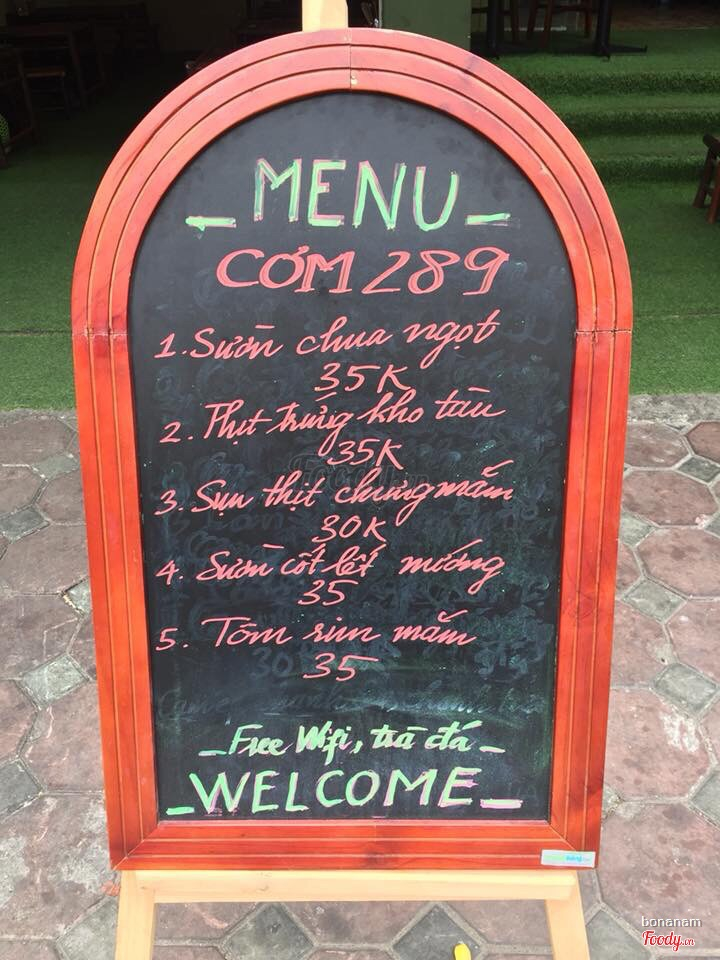 MENU
CƠM 289
1. Sườn chua ngọt
35K
2. Thịt trứng kho tàu
35K
3. Sụn thịt chưng mắm
30K
4. Sườn cốt lết nướng
35
5. Tôm rim mắm
35
Free Wifi, trà đá
WELCOME
bonanam
Foody.vn